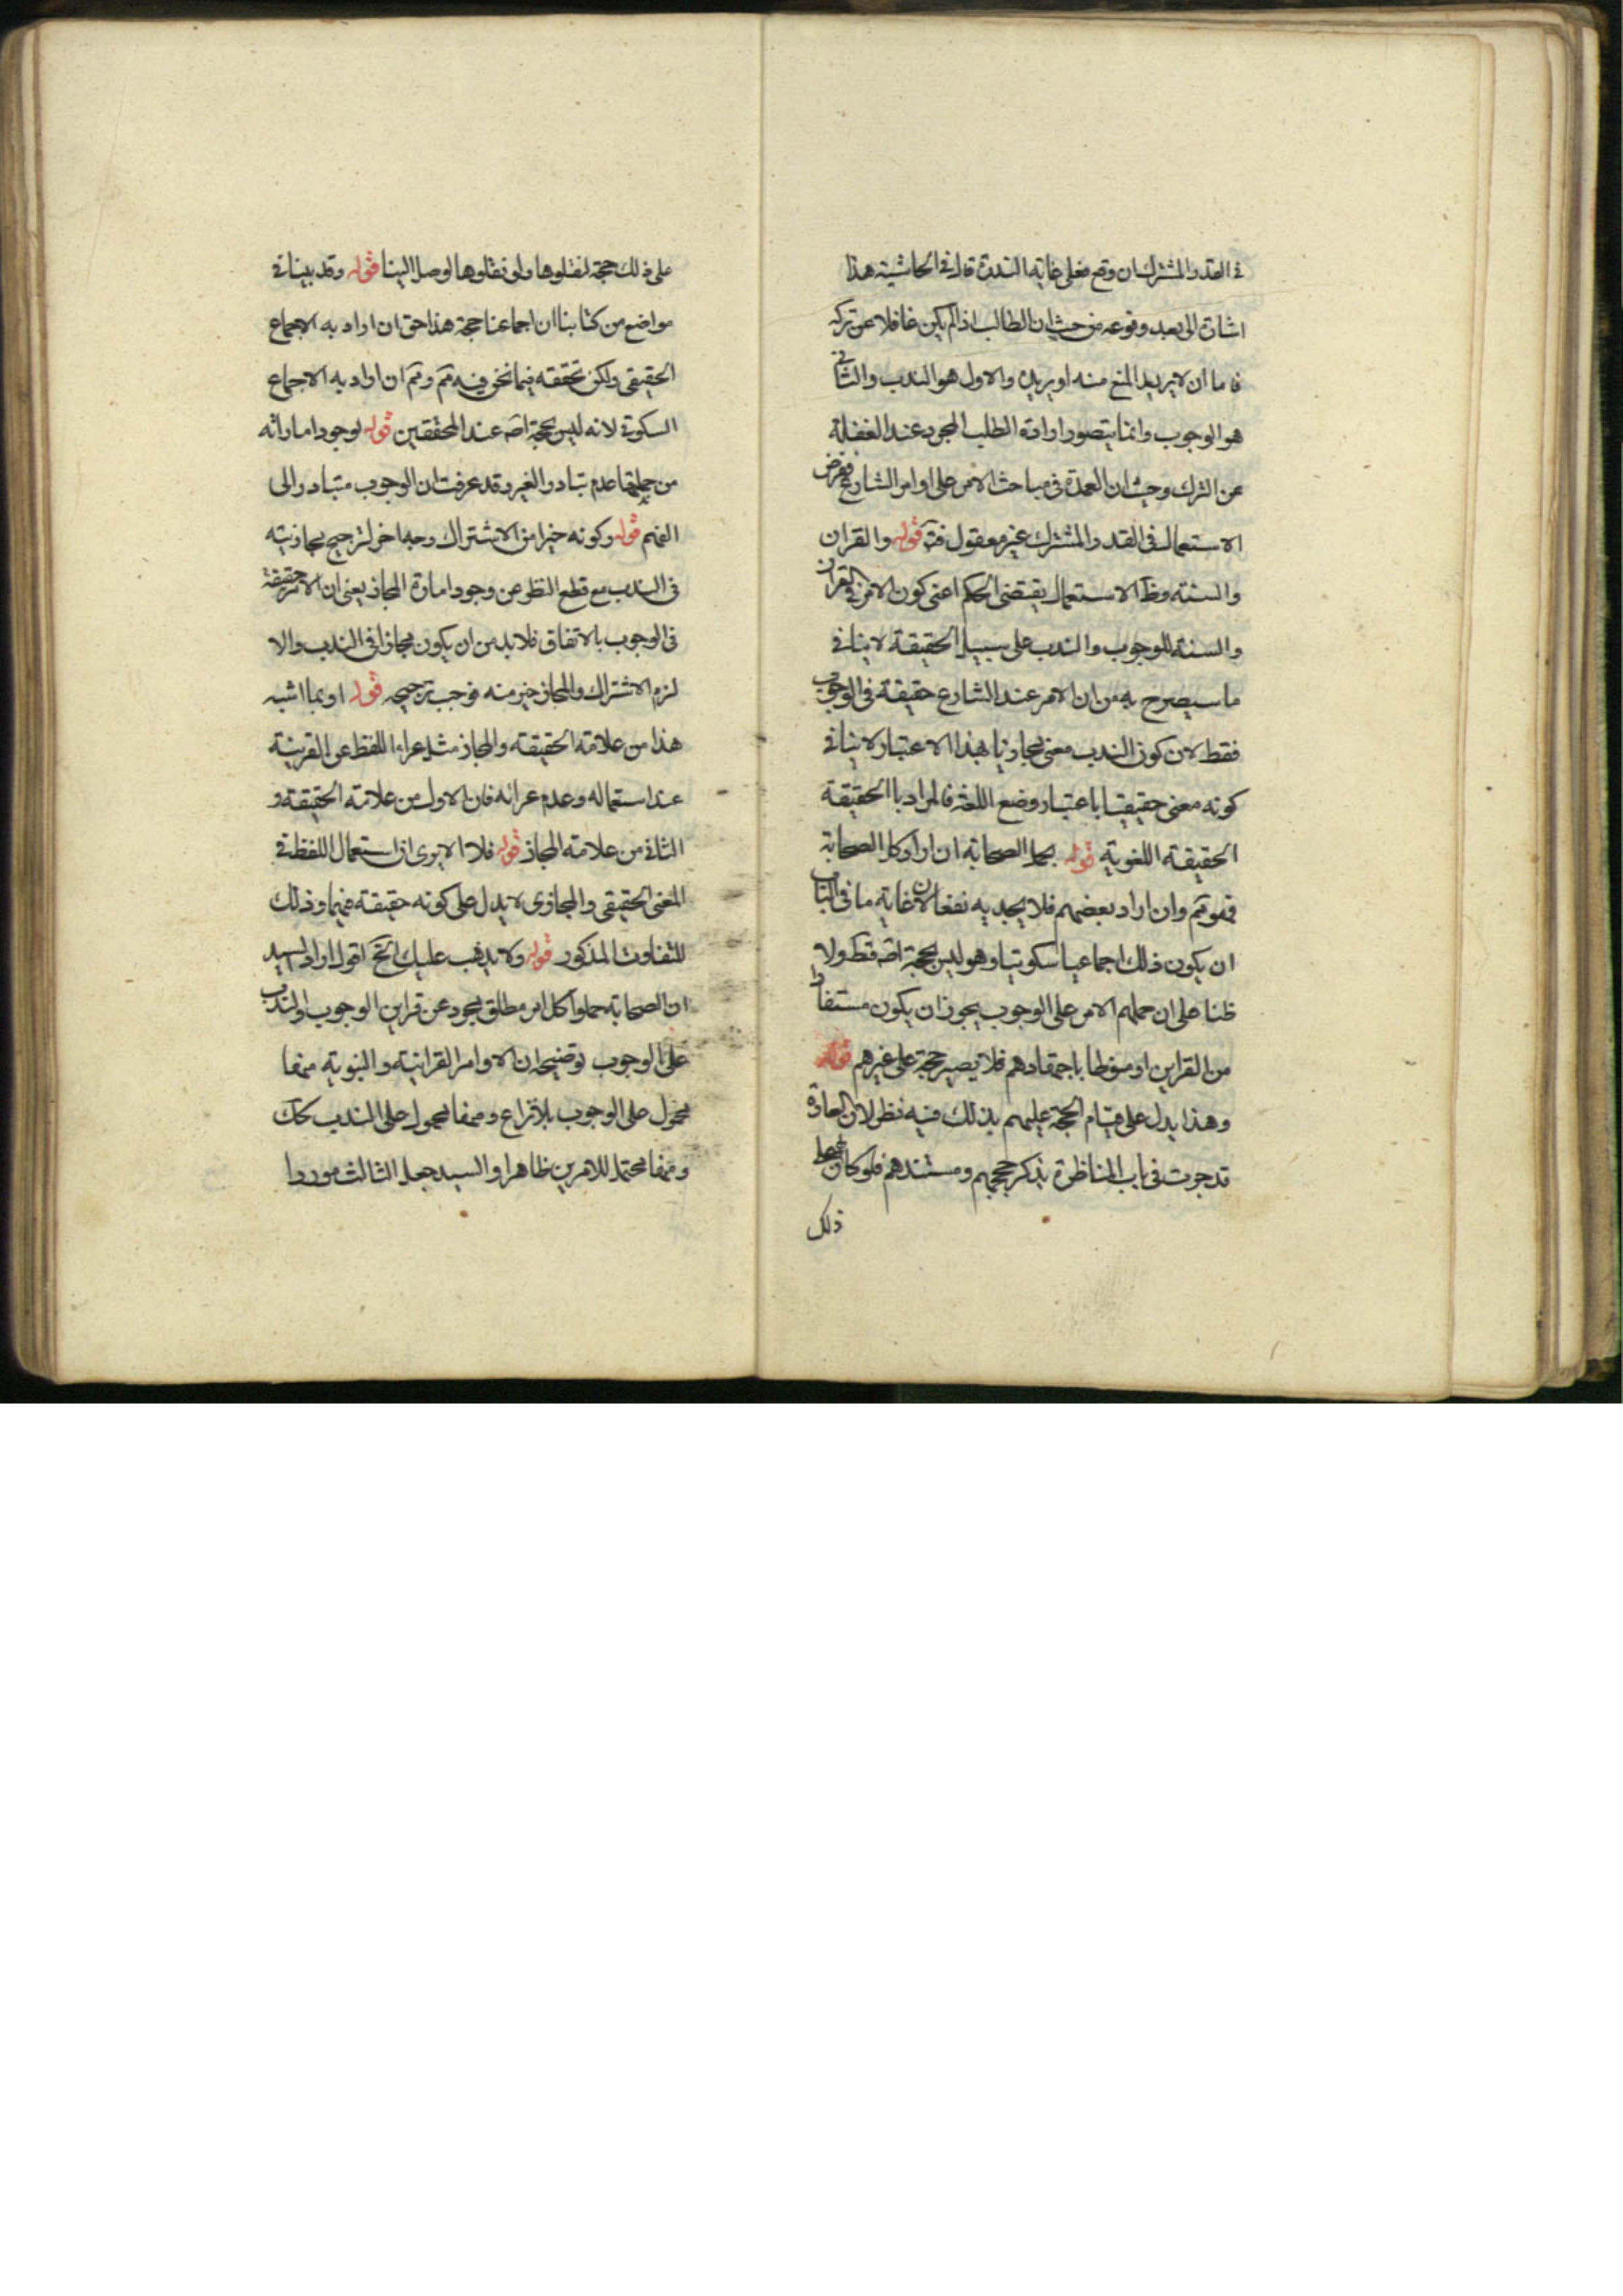 في القدر المشترك ان وقع فعلى غاية الندرة قال في الحاشية هذا
اشارة الى بعد وقوعه من حيث ان الطالب اذا لم يكن غافلا عن تركه
فاما ان لا يريد المنع منه او يريده والاول هو الندب والثاني
هو الوجوب وانما يتصور ارادة الطلب المجرد عند الغفلة
عن الترك وحيث ان العمدة في مباحث الامر على اوامر الشارع ففرض
الاستعمال في القدر المشترك غير معقول فتم قوله والقران
والسنة وظ الاستعمال يقتضى الحكم اعنى كون الامر في القران
والسنة للوجوب والندب على سبيل الحقيقة لا ينافي
ما سيصرح به من ان الامر عند الشارع حقيقة في الوجوب
فقط لان كون الندب معنى مجازيا بهذا الاعتبار لا ينافي
كونه معنى حقيقيا باعتبار وضع اللغة فالمراد بالحقيقة
الحقيقة اللغوية قوله بحمل الصحابة ان اراد كل الصحابة
فهو مم وان اراد بعضهم فلا يجديه نفعا لان غاية ما في الباب
ان يكون ذلك اجماعيا سكوتيا وهو ليس بحجة اصه قطع ولا
ظنا على ان حملهم الامر على الوجوب يجوز ان يكون مستفادا
من القراين او منوطا باجتهادهم فلا يصير حجة على غيرهم قوله
وهذا يدل على قيام الحجة عليهم بذلك فيه نظر لان العادة
قد جرت في باب المناظرة بذكر حججهم ومستندهم فلو كان لهم على
ذلك
على ذلك حجة لنقلوها ولو نقلوها لوصل الينا قوله وقد بينا في
مواضع من كتابنا ان اجماعنا حجة هذا حق ان اراد به الاجماع
الحقيقى ولكن تحققه فيما نحن فيه مم ومم ان اراد به الاجماع
السكوتي لانه ليس بحجة اصه عند المحققين قوله لوجود اماراته
من جملتها عدم تبادر الغير وقد عرفت ان الوجوب متبادر الى
الفهم قوله وكونه خيرا من الاشتراك وجه اخر لترجيح مجازيته
في الندب مع قطع النظر عن وجود امارة المجاز يعنى ان الامر حقيقة
في الوجوب بالاتفاق فلا بد من ان يكون مجازا في الندب والا
لزم الاشتراك والمجاز خير منه فوجب ترجيحه قوله او بما اشبه
هذا من علامة الحقيقة والمجاز مثل عراء اللفظ عن القرينة
عند استعماله وعدم عرائه فان الاول من علامة الحقيقة و
الثاني من علامة المجاز قوله فلا الا يرى ان استعمال اللفظ في
المعنى الحقيقى والمجازى لا يدل على كونه حقيقة فيهما وذلك
للتفاوت المذكور قوله ولا يذهب عليك الخ اقول اراد السيد
ان الصحابة حملوا كل امر مطلق مجرد عن قراين الوجوب والندب
على الوجوب توضيحه ان الاوامر القرانية والنبوية منها
محمول على الوجوب بلا نزاع ومنها محمول على الندب كك
ومنها محتمل للامرين ظاهرا والسيد جعل الثالث موردا